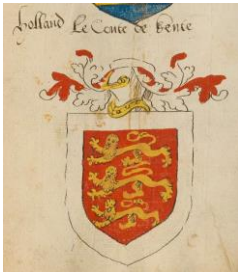 Holland Le Conte de Kente